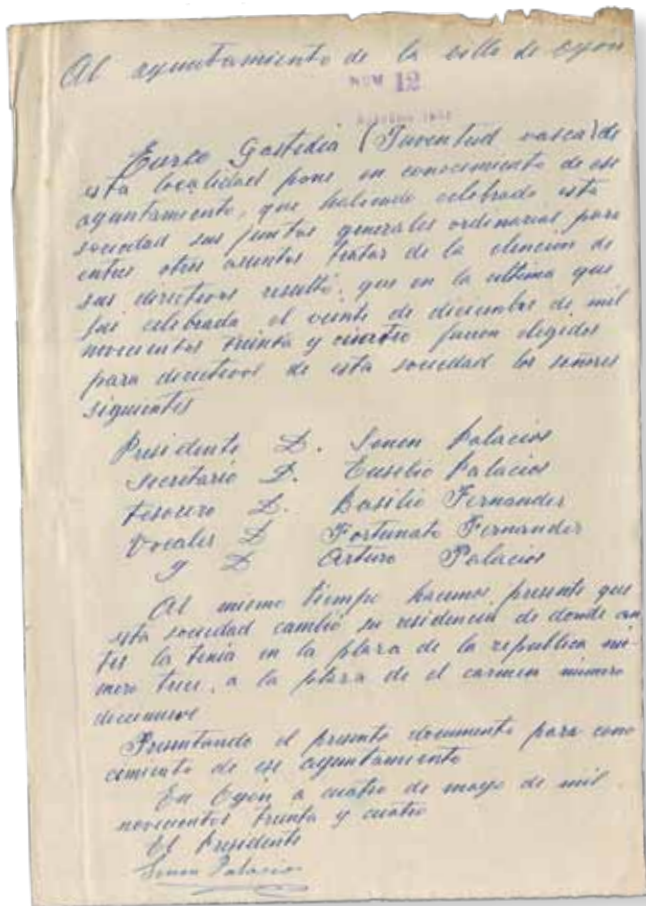 Al ayuntamiento de la villa de Oyon
NUM 12
Euzco Gastedia (Juventud vasca) de
esta localidad pone en conocimiento de ese
ayuntamiento, que habiendo celebrado esta
sociedad sus juntas generales ordinarias para
entre otros asuntos tratar de la elección de
sus directivos resultó, que en la ultima que
fué celebrada el veinte de diciembre de mil
novecientos treinta y cuatro fueron elegidos
para directivos de esta sociedad los señores
siguientes
Presidente D. Senen Palacios
Secretario D. Eusebio Palacios
tesorero D. Basilio Fernandez
Vocales D Fortunato Fernandez
y D Arturo Palacios
Al mismo tiempo hacemos presente que
esta sociedad cambió su residencia de donde an
tes la tenia en la plaza de la republica nú-
mero trece, a la plaza de el carmen número
diecinueve
Presentando el presente documento para cono
cimiento de ese ayuntamiento
En Oyón a cuatro de mayo de mil
novecientos treinta y cuatro
El Presidente
Senen Palacios